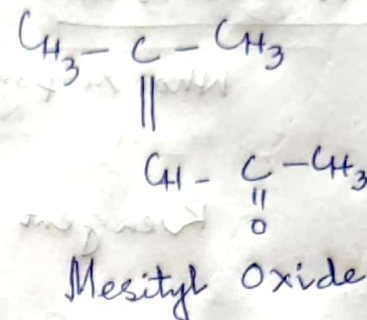 CH3 - C - CH3
||
CH - C - CH3
||
O
Mesityl Oxide